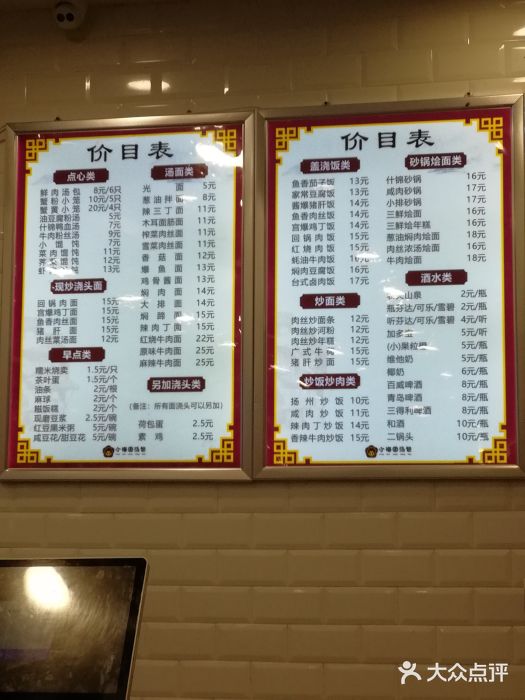 价目表
点心类
鲜肉汤包 8元/6只
蟹粉小笼 10元/5只
蟹黄小笼 20元/4只
油豆腐粉汤 5元
什锦鸭血汤 7元
牛肉粉丝汤 9元
小馄饨 7元
菜肉馄饨 11元
荠菜馄饨 12元
13元
现炒浇头面
回锅肉面 15元
宫爆鸡丁面 15元
鱼香肉丝面 15元
猪肝面 15元
肉丝菜汤面 12元
早点类
糯米烧卖 1.5元/只
茶叶蛋 1.5元/个
油条 2元/根
麻球 2元/个
糍饭糕 2元/个
现磨豆浆 2.5元/碗
红豆黑米粥 5元/碗
咸豆花/甜豆花 5元/碗
汤面类
光面 5元
葱油拌面 8元
辣三丁面 11元
木耳面筋面 11元
榨菜肉丝面 11元
雪菜肉丝面 11元
香菇面 12元
爆鱼面 13元
鸡骨酱面 13元
焖肉面 14元
大排面 14元
焖蹄面 15元
辣肉丁面 15元
红烧牛肉面 22元
原味牛肉面 22元
麻辣牛肉面 22元
另加浇头类
(备注：所有面浇头可以另加)
荷包蛋 2.5元
素鸡 2.5元
价目表
盖浇饭类
鱼香茄子饭 13元
家常豆腐饭 13元
酱爆猪肝饭 14元
鱼香肉丝饭 14元
宫爆鸡丁饭 14元
回锅肉饭 15元
红烧肉饭 17元
蚝油牛肉饭 17元
焖肉豆腐饭 16元
台式卤肉饭 17元
炒面类
肉丝炒面条 12元
肉丝炒河粉 12元
肉丝炒年糕 12元
广式牛河 15元
猪肝炒面 15元
炒饭炒肉类
扬州炒饭 10元
咸肉炒饭 11元
辣肉丁炒饭 14元
香辣牛肉炒饭 15元
砂锅烩面类
什锦砂锅 16元
咸肉砂锅 17元
小排砂锅 17元
三鲜烩面 16元
三鲜烩年糕 16元
葱油焖肉烩面 18元
肉丝浓汤烩面 16元
牛肉烩面 18元
酒水类
2元/瓶
瓶芬达/可乐/雪碧 4元/瓶
听芬达/可乐/雪碧 4元/听
加多宝 5元/听
(小)果粒橙 5元/瓶
维他奶 5元/瓶
椰奶 6元/瓶
百威啤酒 8元/瓶
青岛啤酒 8元/瓶
三得利啤酒 8元/瓶
和酒 10元/瓶
二锅头 10元/瓶
大众点评